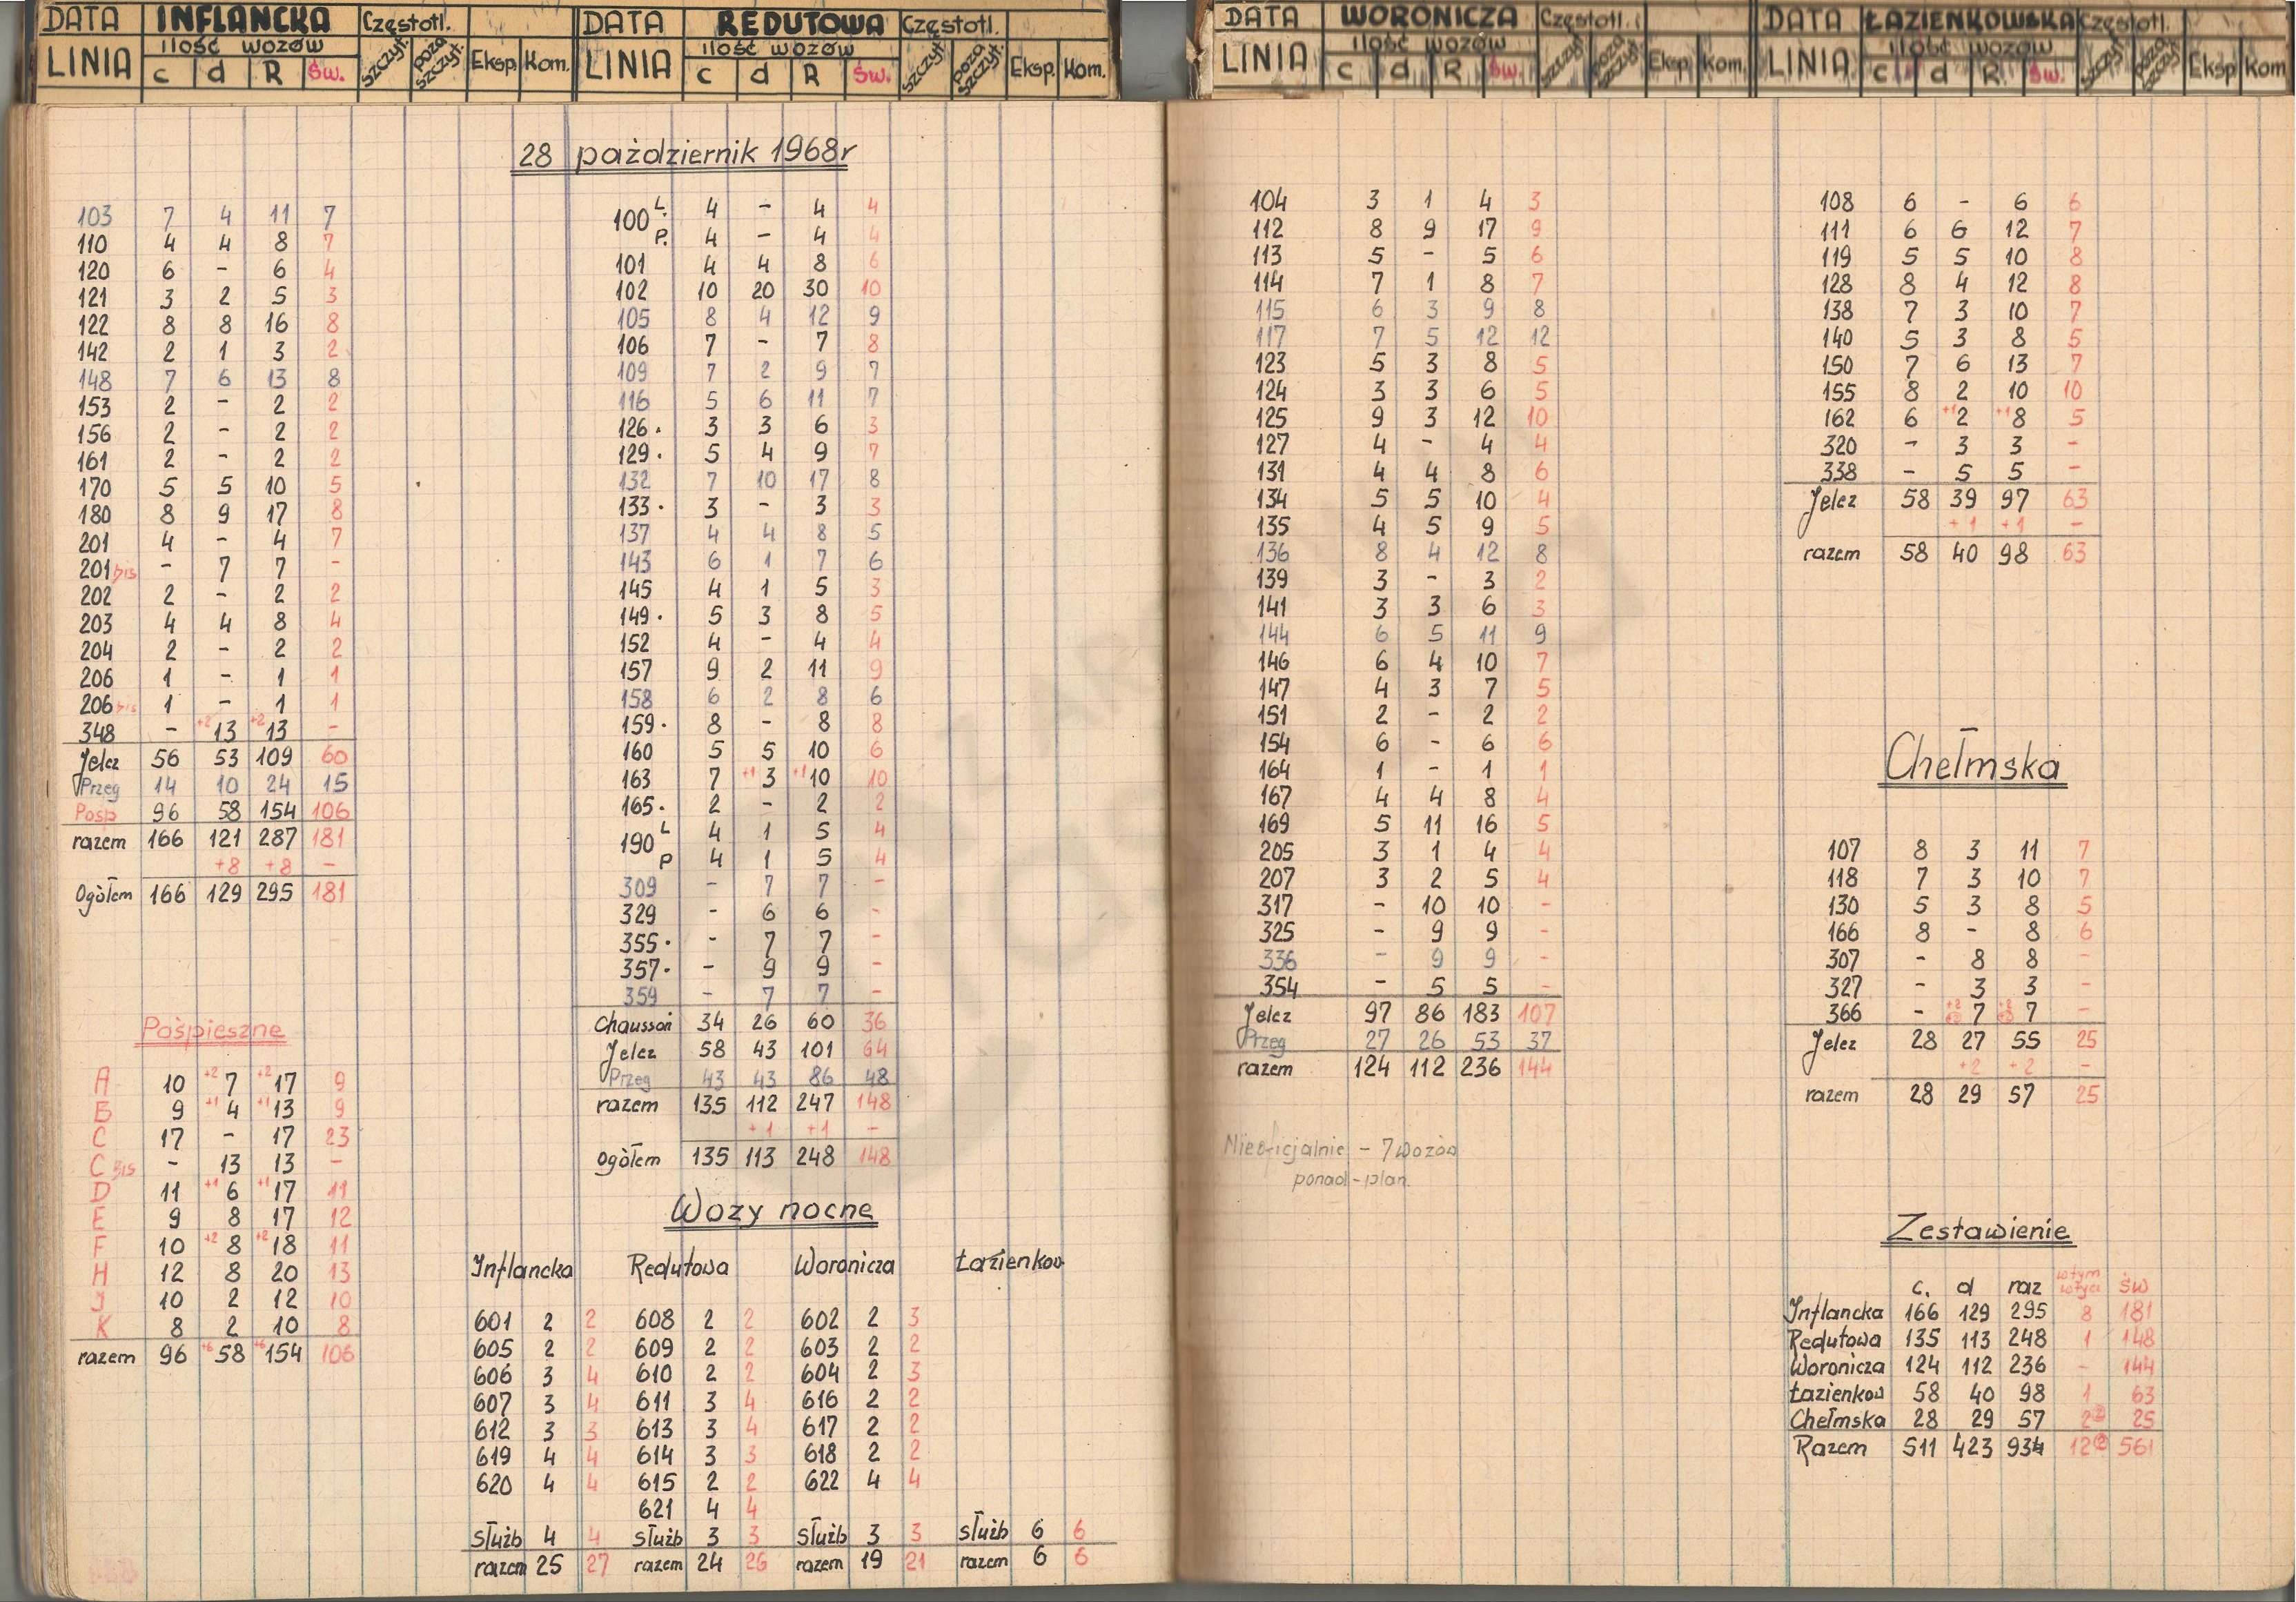 DATA INFLANCKA Częstotl.
LINIA ilość wozów szczyt. poza szczyt. Eksp. Kom.
c d R Św.
DATA REDUTOWA Częstotl.
LINIA ilość wozów szczyt. poza szczyt. Eksp. Kom.
c d R Św.
DATA WORONICZA Częstotl.
LINIA ilość wozów szczyt. poza szczyt. Eksp. Kom.
c d R Św.
DATA ŁAZIENKOWSKA Częstotl.
LINIA ilość wozów szczyt. poza szczyt. Eksp Kom
c d R. Św.
28 październik 1968r
103 7 4 11 7
110 4 4 8 7
120 6 - 6 4
121 3 2 5 3
122 8 8 16 8
142 2 1 3 2
148 7 6 13 8
153 2 - 2 2
156 2 - 2 2
161 2 - 2 2
170 5 5 10 5
180 8 9 17 8
201 4 - 4 7
201 bis - 7 7 -
202 2 - 2 2
203 4 4 8 4
204 2 - 2 2
206 1 - 1 1
206 bis 1 - 1 1
348 - +2 13 +2 13 -
Jelcz 56 53 109 60
Przeg 14 10 24 15
Pośp 96 58 154 106
razem 166 121 287 181
+8 +8 -
Ogółem 166 129 295 181
Pośpieszne
A 10 +2 7 +2 17 9
B 9 +1 4 +1 13 9
C 17 - 17 23
C bis - 13 13 -
D 11 +1 6 +1 17 11
E 9 8 17 12
F 10 +2 8 +2 18 11
H 12 8 20 13
J 10 2 12 10
K 8 2 10 8
razem 96 +6 58 +6 154 106
100 L. 4 - 4 4
P. 4 - 4 4
101 4 4 8 6
102 10 20 30 10
105 8 4 12 9
106 7 - 7 8
109 7 2 9 7
116 5 6 11 7
126. 3 3 6 3
129. 5 4 9 7
132 7 10 17 8
133. 3 - 3 3
137 4 4 8 5
143 6 1 7 6
145 4 1 5 3
149. 5 3 8 5
152 4 - 4 4
157 9 2 11 9
158 6 2 8 6
159. 8 - 8 8
160 5 5 10 6
163 7 +1 3 +1 10 10
165. 2 - 2 2
190 L 4 1 5 4
P 4 1 5 4
309 - 7 7 -
329 - 6 6 -
355. - 7 7 -
357. - 9 9 -
359 - 7 7 -
Chausson 34 26 60 36
Jelcz 58 43 101 64
Przeg 43 43 86 48
razem 135 112 247 148
+1 +1 -
Ogółem 135 113 248 148
Wozy nocne
Inflancka Redutowa Woronicza Łazienkow
601 2 2 608 2 2 602 2 3
605 2 2 609 2 2 603 2 2
606 3 4 610 2 2 604 2 3
607 3 4 611 3 4 616 2 2
612 3 3 613 3 4 617 2 2
619 4 4 614 3 3 618 2 2
620 4 4 615 2 2 622 4 4
621 4 4
służb 4 4 służb 3 3 służb 3 3 służb 6 6
razem 25 27 razem 24 26 razem 19 21 razem 6 6
104 3 1 4 3
112 8 9 17 9
113 5 - 5 6
114 7 1 8 7
115 6 3 9 8
117 7 5 12 12
123 5 3 8 5
124 3 3 6 5
125 9 3 12 10
127 4 - 4 4
131 4 4 8 6
134 5 5 10 4
135 4 5 9 5
136 8 4 12 8
139 3 - 3 2
141 3 3 6 3
144 6 5 11 9
146 6 4 10 7
147 4 3 7 5
151 2 - 2 2
154 6 - 6 6
164 1 - 1 1
167 4 4 8 4
169 5 11 16 5
205 3 1 4 4
207 3 2 5 4
317 - 10 10 -
325 - 9 9 -
336 - 9 9 -
354 - 5 5 -
Jelcz 97 86 183 107
Przeg 27 26 53 37
razem 124 112 236 144
Nieoficjalnie - 7 wozów
ponad-plan.
108 6 - 6 6
111 6 6 12 7
119 5 5 10 8
128 8 4 12 8
138 7 3 10 7
140 5 3 8 5
150 7 6 13 7
155 8 2 10 10
162 6 +1 2 +1 8 5
320 - 3 3 -
338 - 5 5 -
Jelcz 58 39 97 63
+1 +1 -
razem 58 40 98 63
Chełmska
107 8 3 11 7
118 7 3 10 7
130 5 3 8 5
166 8 - 8 6
307 - 8 8 -
327 - 3 3 -
366 - +2 7 +2 7 -
Jelcz 28 27 55 25
+2 +2 -
razem 28 29 57 25
Zestawienie
c. d raz wtym św
Inflancka 166 129 295 8 181
Redutowa 135 113 248 1 148
Woronicza 124 112 236 - 144
Łazienkow 58 40 98 1 63
Chełmska 28 29 57 2 25
Razem 511 423 934 12 561